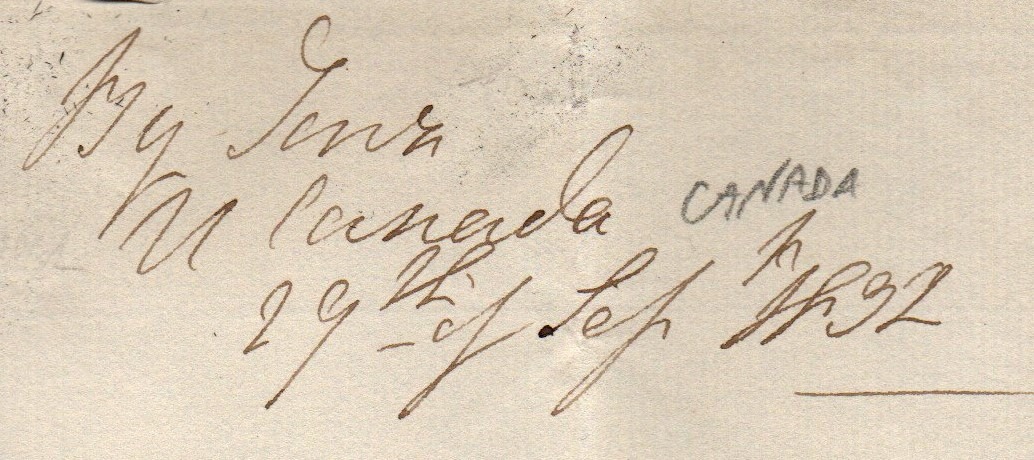 By Town
U Canada CANADA
29th of Sepr 1832